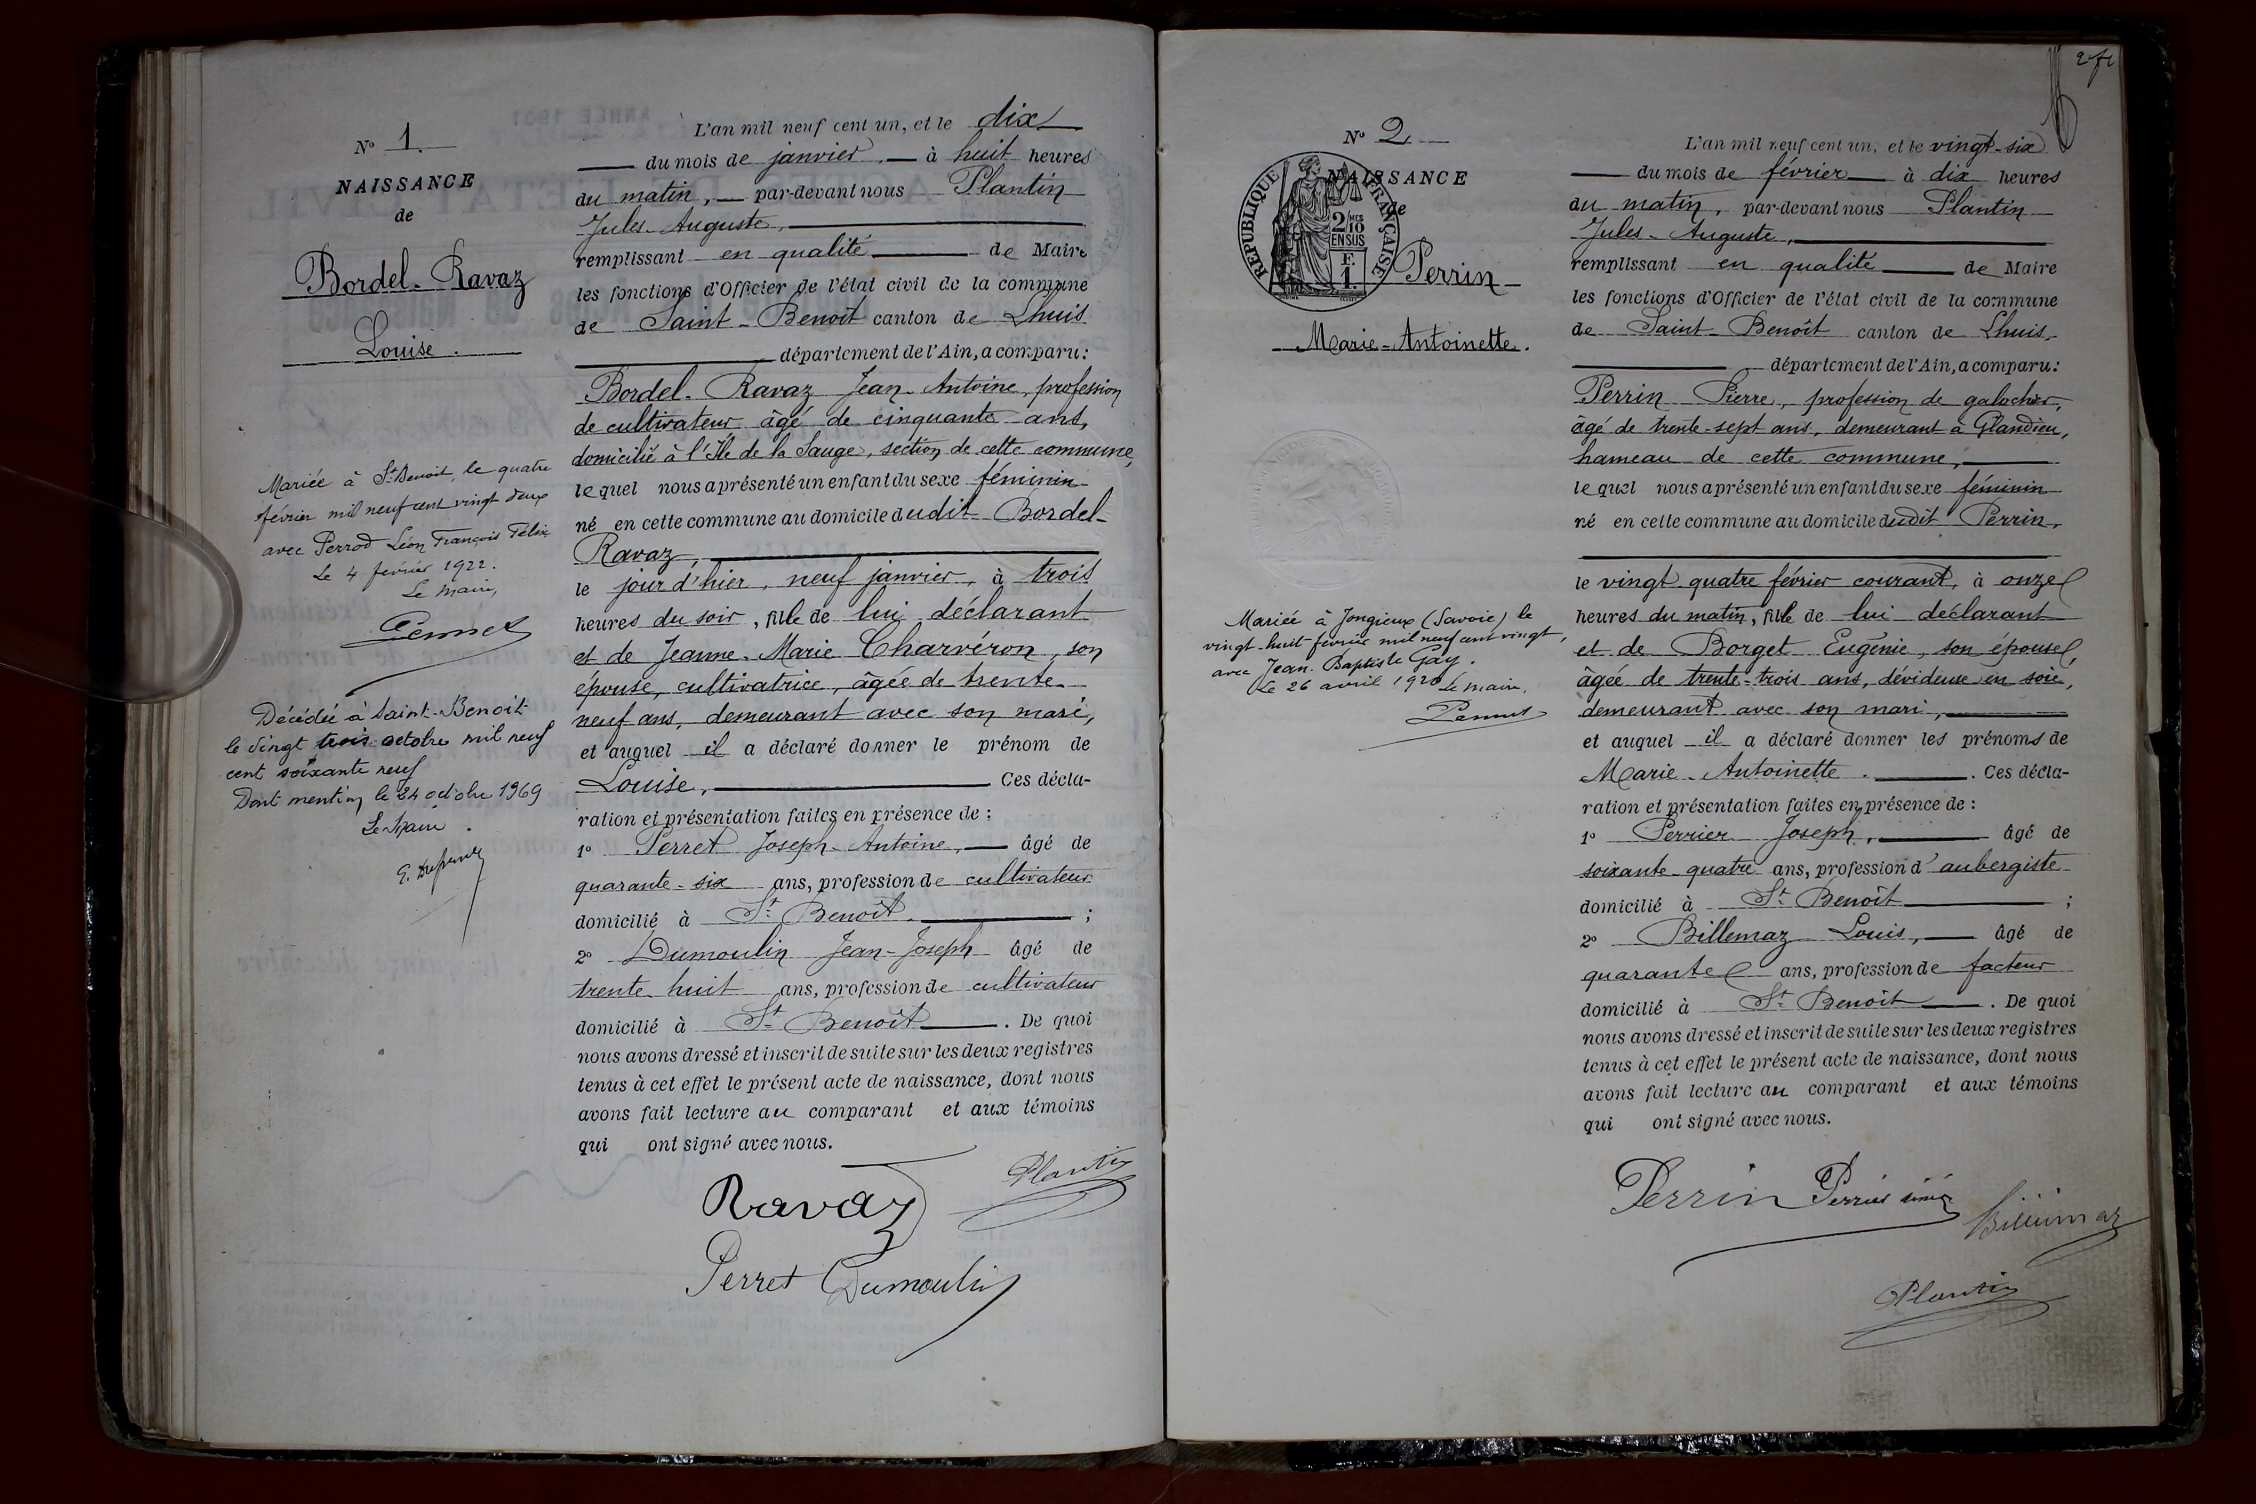 N° 1.
NAISSANCE
de
Bordel-Ravaz
Louise.
Mariée à St Benoit, le quatre
février mil neuf cent vingt deux
avec Perrod Léon François Félix
Le 4 février 1922.
Le maire,
Décédée à Saint-Benoit
le vingt trois octobre mil neuf
cent soixante neuf
Dont mention le 24 octobre 1969
Le Maire.
L'an mil neuf cent un, et le dix
du mois de janvier, à huit heures
du matin, par-devant nous Plantin
Jules-Auguste,
remplissant en qualité de Maire
les fonctions d'Officier de l'état civil de la commune
de Saint-Benoît canton de Lhuis
département de l'Ain, a comparu:
Bordel-Ravaz Jean-Antoine, profession
de cultivateur âgé de cinquante ans,
domicilié à l'Ile de la Sauge, section de cette commune,
lequel nous a présenté un enfant du sexe féminin
né en cette commune au domicile dudit Bordel-
Ravaz,
le jour d'hier, neuf janvier, à trois
heures du soir, fille de lui déclarant
et de Jeanne-Marie Charvéron, son
épouse, cultivatrice, âgée de trente-
neuf ans, demeurant avec son mari,
et auquel il a déclaré donner le prénom de
Louise, Ces décla-
ration et présentation faites en présence de:
1° Perret Joseph-Antoine, âgé de
quarante-six ans, profession de cultivateur
domicilié à St Benoît ;
2° Dumoulin Jean-Joseph âgé de
trente-huit ans, profession de cultivateur
domicilié à St Benoît. De quoi
nous avons dressé et inscrit de suite sur les deux registres
tenus à cet effet le présent acte de naissance, dont nous
avons fait lecture au comparant et aux témoins
qui ont signé avec nous.
Plantin
Ravaz
Perret Dumoulin
2 f
N° 2
NAISSANCE
de
RÉPUBLIQUE FRANÇAISE
2 MES
10
EN SUS
F.
1.
Perrin
Marie-Antoinette.
Mariée à Jongieux (Savoie) le
vingt-huit février mil neuf cent vingt,
avec Jean-Baptiste Gay.
Le 26 avril 1920 Le maire,
L'an mil neuf cent un, et le vingt-six
du mois de février à dix heures
du matin, par-devant nous Plantin
Jules-Auguste,
remplissant en qualité de Maire
les fonctions d'Officier de l'état civil de la commune
de Saint-Benoît canton de Lhuis,
département de l'Ain, a comparu:
Perrin Pierre, profession de galochier,
âgé de trente-sept ans, demeurant à Glandieu,
hameau de cette commune,
lequel nous a présenté un enfant du sexe féminin
né en cette commune au domicile dudit Perrin,
le vingt-quatre février courant, à onze
heures du matin, fille de lui déclarant
et de Borget Eugénie, son épouse,
âgée de trente-trois ans, dévideuse en soie,
demeurant avec son mari,
et auquel il a déclaré donner les prénoms de
Marie-Antoinette. Ces décla-
ration et présentation faites en présence de:
1° Perrier Joseph, âgé de
soixante-quatre ans, profession d'aubergiste
domicilié à St Benoît ;
2° Billemaz Louis, âgé de
quarante ans, profession de facteur
domicilié à St Benoît. De quoi
nous avons dressé et inscrit de suite sur les deux registres
tenus à cet effet le présent acte de naissance, dont nous
avons fait lecture au comparant et aux témoins
qui ont signé avec nous.
Perrin Perrier
Billemaz
Plantin